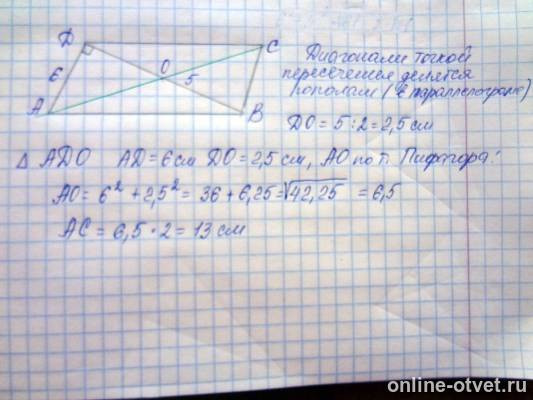 D
C
O
5
6
A
B
Диагонали точкой
пересечения делятся
пополам (в параллелограме)
DO = 5 : 2 = 2,5 см
Δ ADO AD = 6 см DO = 2,5 см, AO по т. Пифагора:
AO = 6² + 2,5² = 36 + 6,25 = √42,25 = 6,5
AC = 6,5 · 2 = 13 см
online-otvet.ru